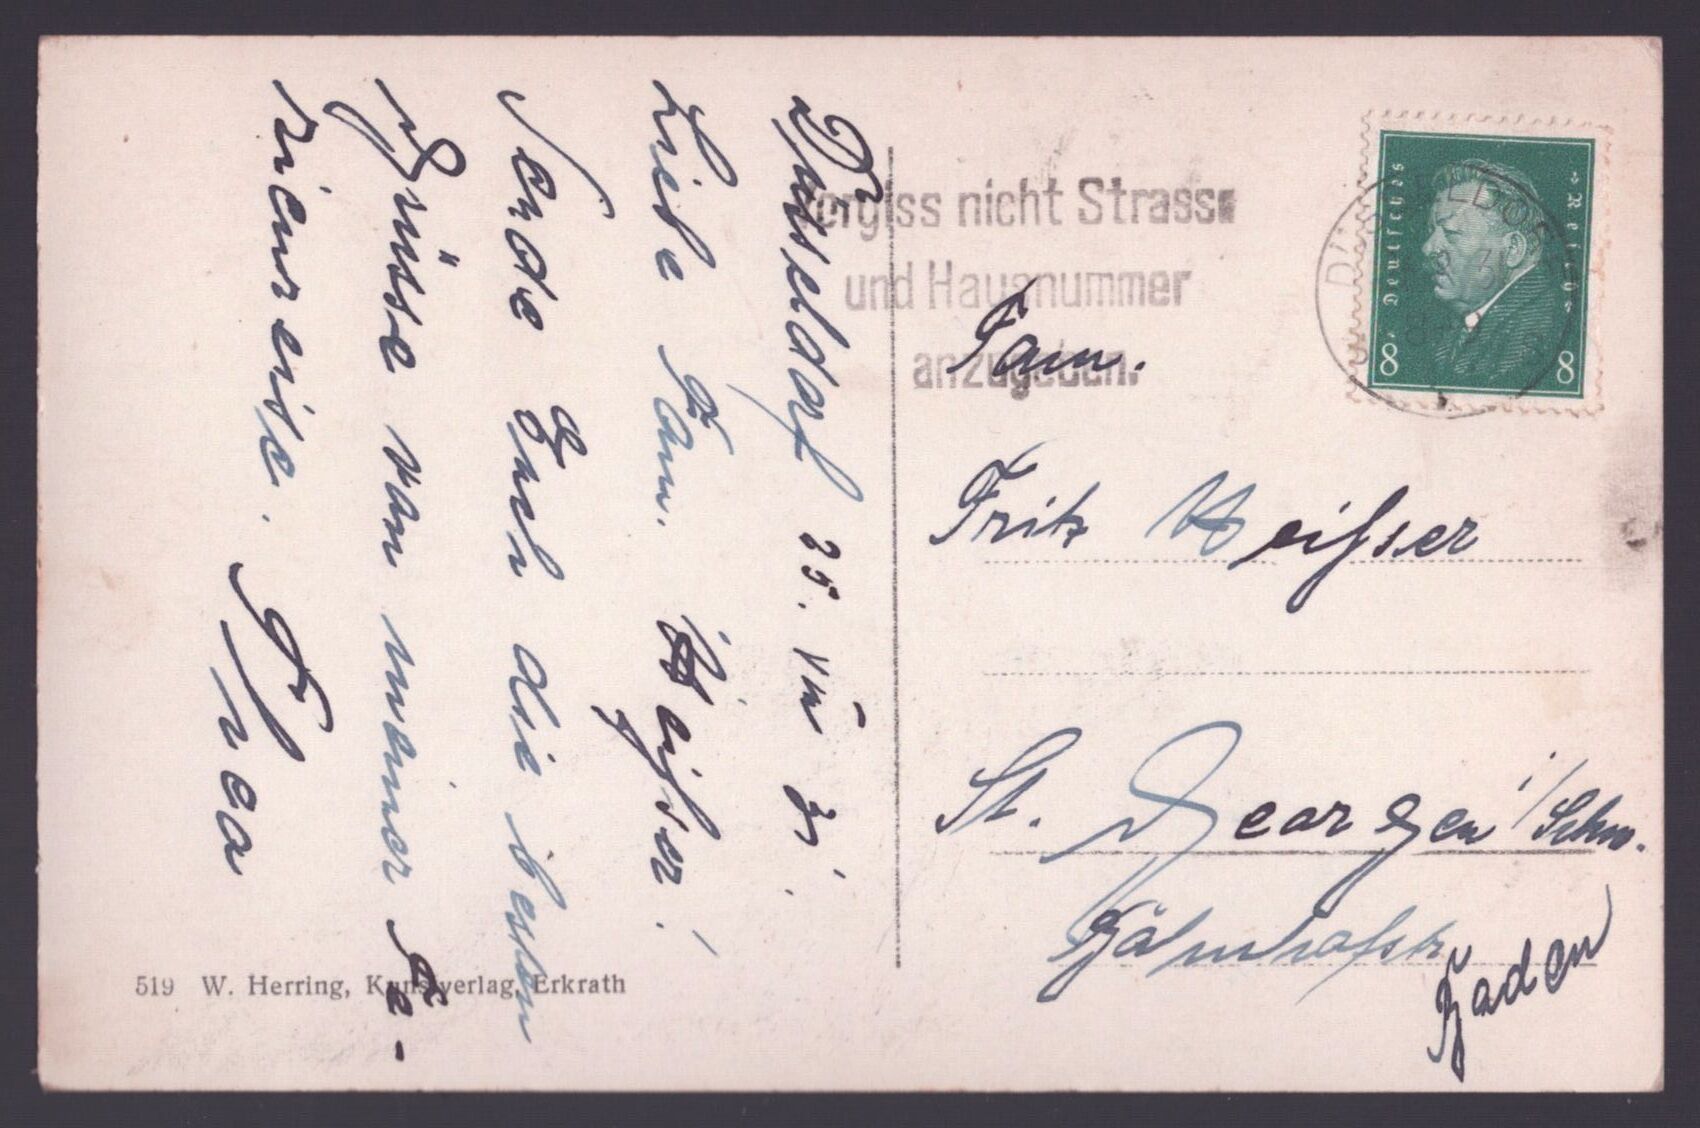 Düsseldorf 25. VIII 31.
Liebe Fam. Weißer!
Sende Euch die besten
Grüsse von meiner Fe-
rienreise. Thea
519 W. Herring, Kunstverlag, Erkrath
Vergiss nicht Strasse
und Hausnummer
anzugeben.
Deutsches Reich
8 8
Fam.
Fritz Weißer
St. Georgen i/Schw.
Bahnhofstr
Baden